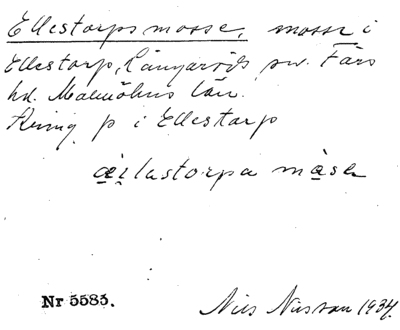 Ellestorps mosse, mosse i
Ellestorp, Långaröds sn. Färs
hd. Malmöhus län.
Kring p i Ellestorp
a̤i̤lastorpa mo̤sa
Nr 5583.
Nils Nilsson 1934.